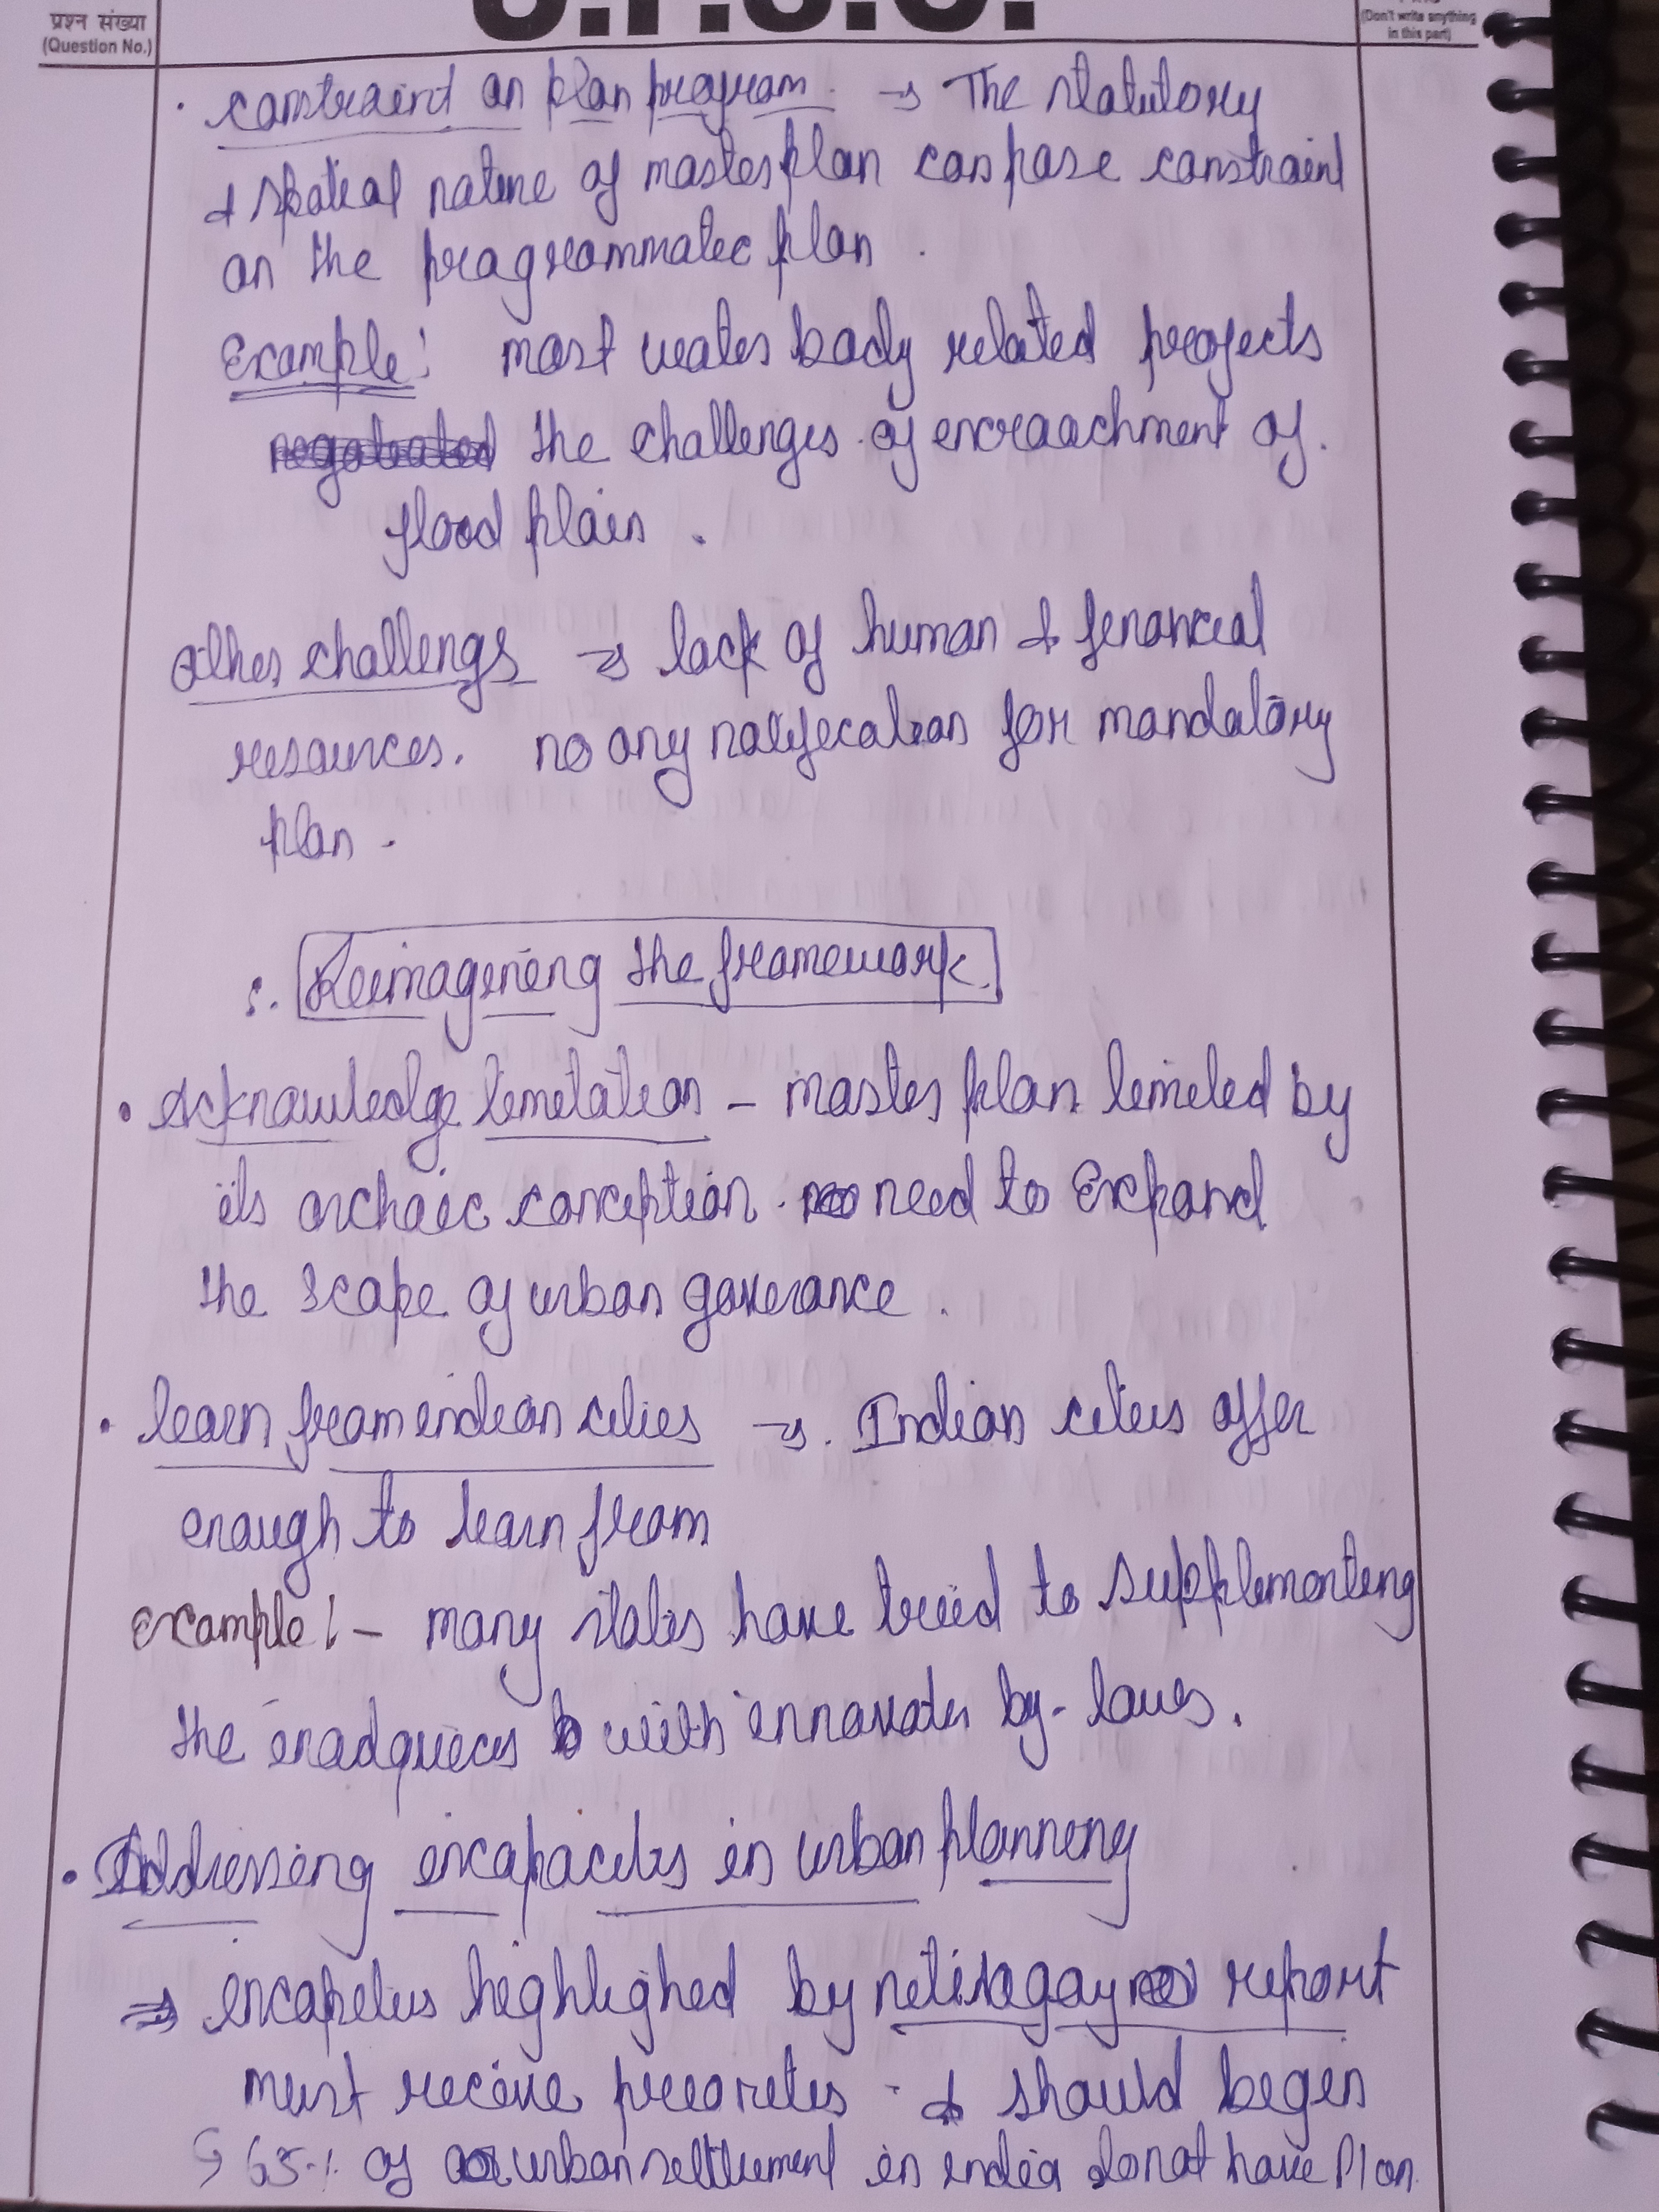 प्रश्न संख्या
(Question No.)
(Don't write anything
in this part)
· constraint on plan program → The statutory
& spatial nature of master plan can pose constraint
on the programmatic plan .
Example: most water body related projects
the challenges of encroachment of
flood plain .
Other challengs ⇒ lack of human & financial
resources. no any notification for mandatory
plan .
:. Reimagining the framework.
• Acknowledge limitation – master plan limited by
its archaic conception. need to Expand
the scope of urban goverance .
· learn from indian cities → . Indian cities offer
enough to learn from
example :– many states have tried to supplementing
the inadquices with innovates by-laws.
· Addressing incapacites in urban planning
⇒ incapities highlighed by netiaayog report
must recieve priorites . & should begin
↳ 65% of urban settlement in india donot have Plan.